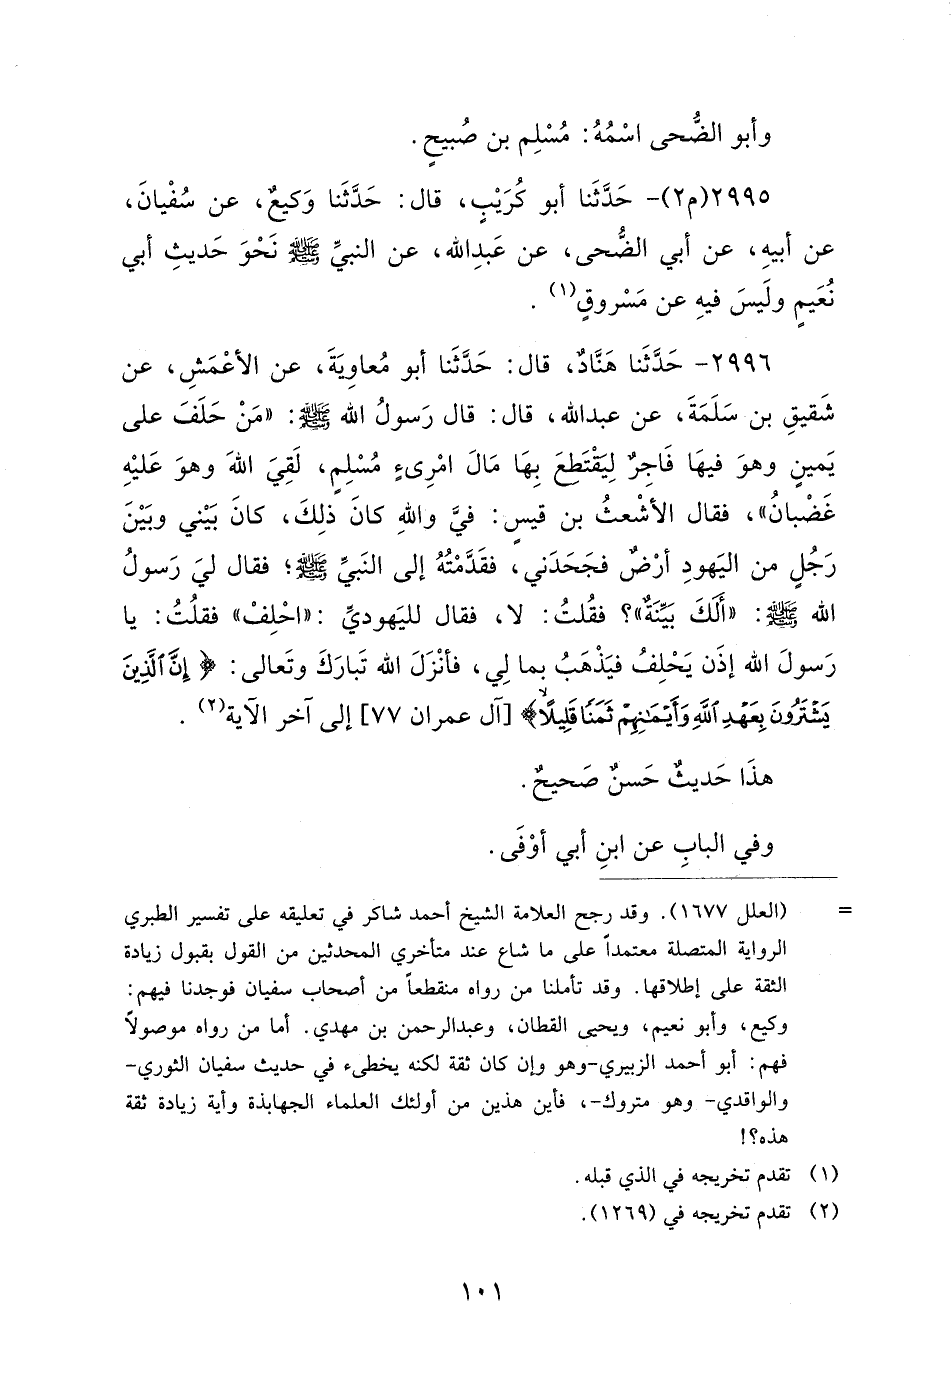 وأبو الضُّحى اسْمُهُ: مُسْلِم بن صُبيحٍ.
٢٩٩٥(م٢)- حَدَّثَنا أبو كُرَيْبٍ، قال: حَدَّثَنا وَكيعٌ، عن سُفْيانَ،
عن أبيهِ، عن أبي الضُّحى، عن عَبدِالله، عن النبيِّ ﷺ نَحْوَ حَديثِ أبي
نُعَيمٍ ولَيسَ فيهِ عن مَسْروقٍ(١) .
٢٩٩٦- حَدَّثَنا هَنَّادٌ، قال: حَدَّثَنا أبو مُعاوِيَةَ، عن الأعْمَشِ، عن
شَقيقِ بن سَلَمَةَ، عن عبدالله، قال: قال رَسولُ الله ﷺ: «مَنْ حَلَفَ على
يَمينٍ وهوَ فيهَا فَاجِرٌ لِيَقْتَطِعَ بِهَا مَالَ امْرِىءٍ مُسْلِمٍ، لَقِيَ اللهَ وهوَ عَلَيْهِ
غَضْبانُ»، فقال الأشْعثُ بن قيسٍ: فيَّ واللهِ كانَ ذلِكَ، كانَ بَيْني وبَيْنَ
رَجُلٍ من اليَهودِ أرْضٌ فجَحَدَني، فقَدَّمْتُهُ إلى النبيِّ ﷺ؛ فقال ليَ رَسولُ
الله ﷺ: «أَلَكَ بَيِّنَةٌ»؟ فقُلتُ: لا، فقال لليَهوديِّ :«احْلِفْ» فقلْتُ: يا
رَسولَ الله إذَن يَحْلِفُ فيَذْهَبُ بما لي، فأنْزَلَ الله تَبارَكَ وتَعالى: ﴿ إِنَّ ٱلَّذِينَ
يَشْتَرُونَ بِعَهْدِ ٱللَّهِ وَأَيْمَٰنِهِمْ ثَمَنًا قَلِيلًا﴾ [آل عمران ٧٧] إلى آخر الآية(٢) .
هذَا حَديثٌ حَسنٌ صَحيحٌ.
وفي البابِ عن ابنِ أبي أوْفَى.
= (العلل ١٦٧٧). وقد رجح العلامة الشيخ أحمد شاكر في تعليقه على تفسير الطبري
الرواية المتصلة معتمداً على ما شاع عند متأخري المحدثين من القول بقبول زيادة
الثقة على إطلاقها. وقد تأملنا من رواه منقطعاً من أصحاب سفيان فوجدنا فيهم:
وكيع، وأبو نعيم، ويحيى القطان، وعبدالرحمن بن مهدي. أما من رواه موصولاً
فهم: أبو أحمد الزبيري-وهو وإن كان ثقة لكنه يخطىء في حديث سفيان الثوري-
والواقدي- وهو متروك-، فأين هذين من أولئك العلماء الجهابذة وأية زيادة ثقة
هذه؟!
(١) تقدم تخريجه في الذي قبله.
(٢) تقدم تخريجه في (١٢٦٩).
١٠١